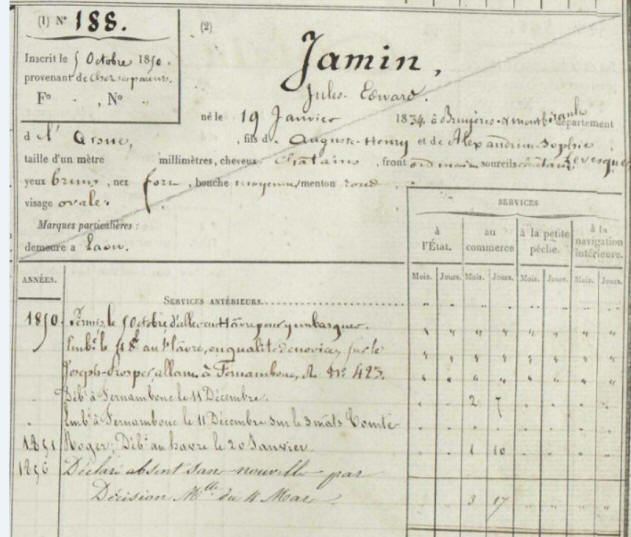 (1) N° 188.
(2)
Jamin,
Jules-Edward.
Inscrit le 5 Octobre 1850.
provenant de chez ses parents.
F° , N°
né le 19 Janvier 1834 à Bruyères & montbérault département
d l'Aisne, , fils d' Auguste-Henry et de Alexandrine-Sophie
Levesque
taille d'un mètre millimètres, cheveux chatains, front ordinaire sourcils chatains
yeux bruns, nez fort, bouche moyenne, menton rond
visage ovale.
Marques particulières :
demeure à Laon.
SERVICES
à l'État. au commerce à la petite pêche. à la navigation intérieure.
ANNÉES. Mois. Jours. Mois. Jours. Mois. Jours. Mois. Jours.
SERVICES ANTÉRIEURS
1850 Permis le 5 Octobre d'aller au Hâvre pour y embarquer.
Emb. le 18 au Hâvre, en qualité de novice, sur le
Joseph-Prosper, allant à Fernambouc, A. N° 423.
Déb. à Fernambouc le 11 Décembre. 2 7
Emb. à Fernambouc le 11 Décembre sur le 3 mats Comte
1851 Roger; Déb. au havre le 20 Janvier. 1 10
1856 Déclaré absent san nouvelle par
Décision Mlle du 4 Mar 3 17